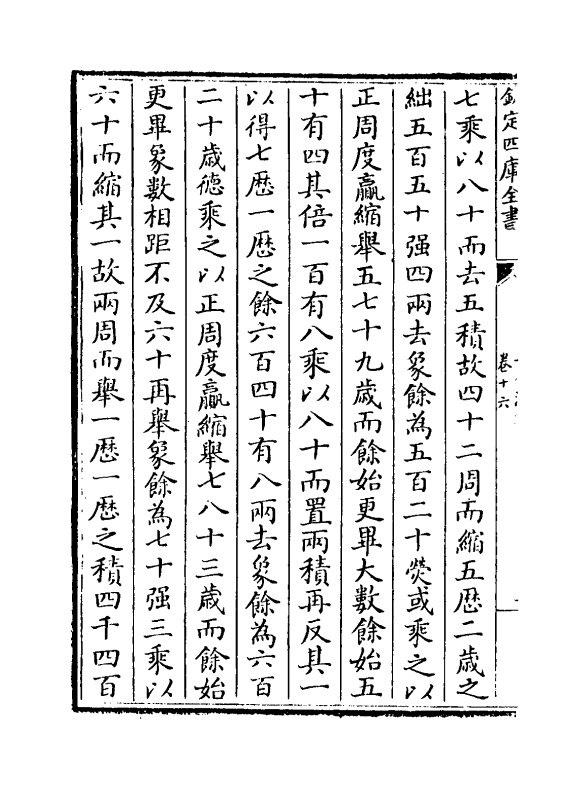 欽定四庫全書
卷十六
七乘以八十而去五積故四十二周而縮五厯二歲之
絀五百五十强四兩去象餘為五百二十熒或乘之以
正周度贏縮舉五七十九歲而餘始更畢大數餘始五
十有四其倍一百有八乘以八十而置兩積再反其一
以得七厯一厯之餘六百四十有八兩去象餘為六百
二十歲德乘之以正周度贏縮舉七八十三歲而餘始
更畢象數相距不及六十再舉象餘為七十强三乘以
六十而縮其一故兩周而舉一厯一厯之積四千四百